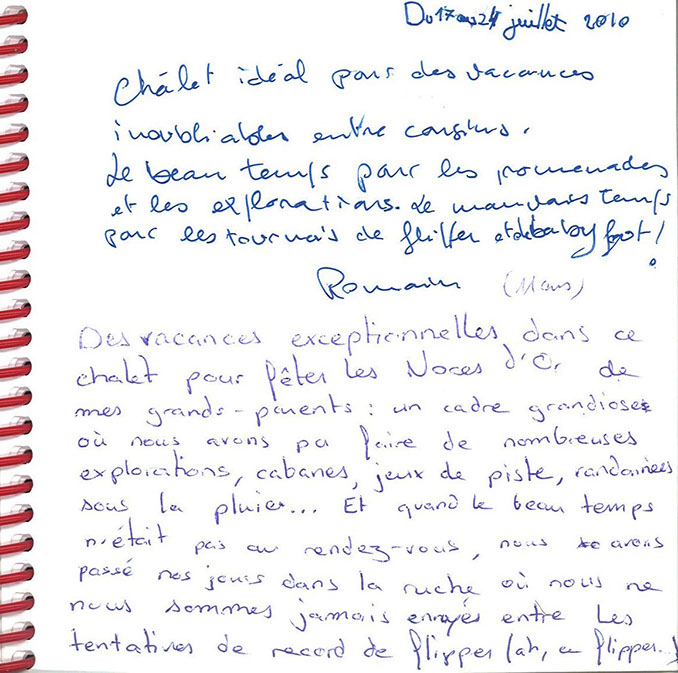 Du 17 au 24 juillet 2010
Châlet idéal pour des vacances
inoubliables entre cousins.
Le beau temps pour les promenades
et les explorations. Le mauvais temps
pour les tournois de fliffer et de baby foot !
Romain (Mans)
Des vacances exceptionnelles dans ce
chalet pour fêter les Noces d'Or de
mes grands-parents : un cadre grandiose
où nous avons pu faire de nombreuses
explorations, cabanes, jeux de piste, randonnées
sous la pluie... Et quand le beau temps
n'était pas au rendez-vous, nous avons
passé nos jours dans la ruche où nous ne
nous sommes jamais ennuyés entre les
tentatives de record de flipper (ah, ce flipper...)